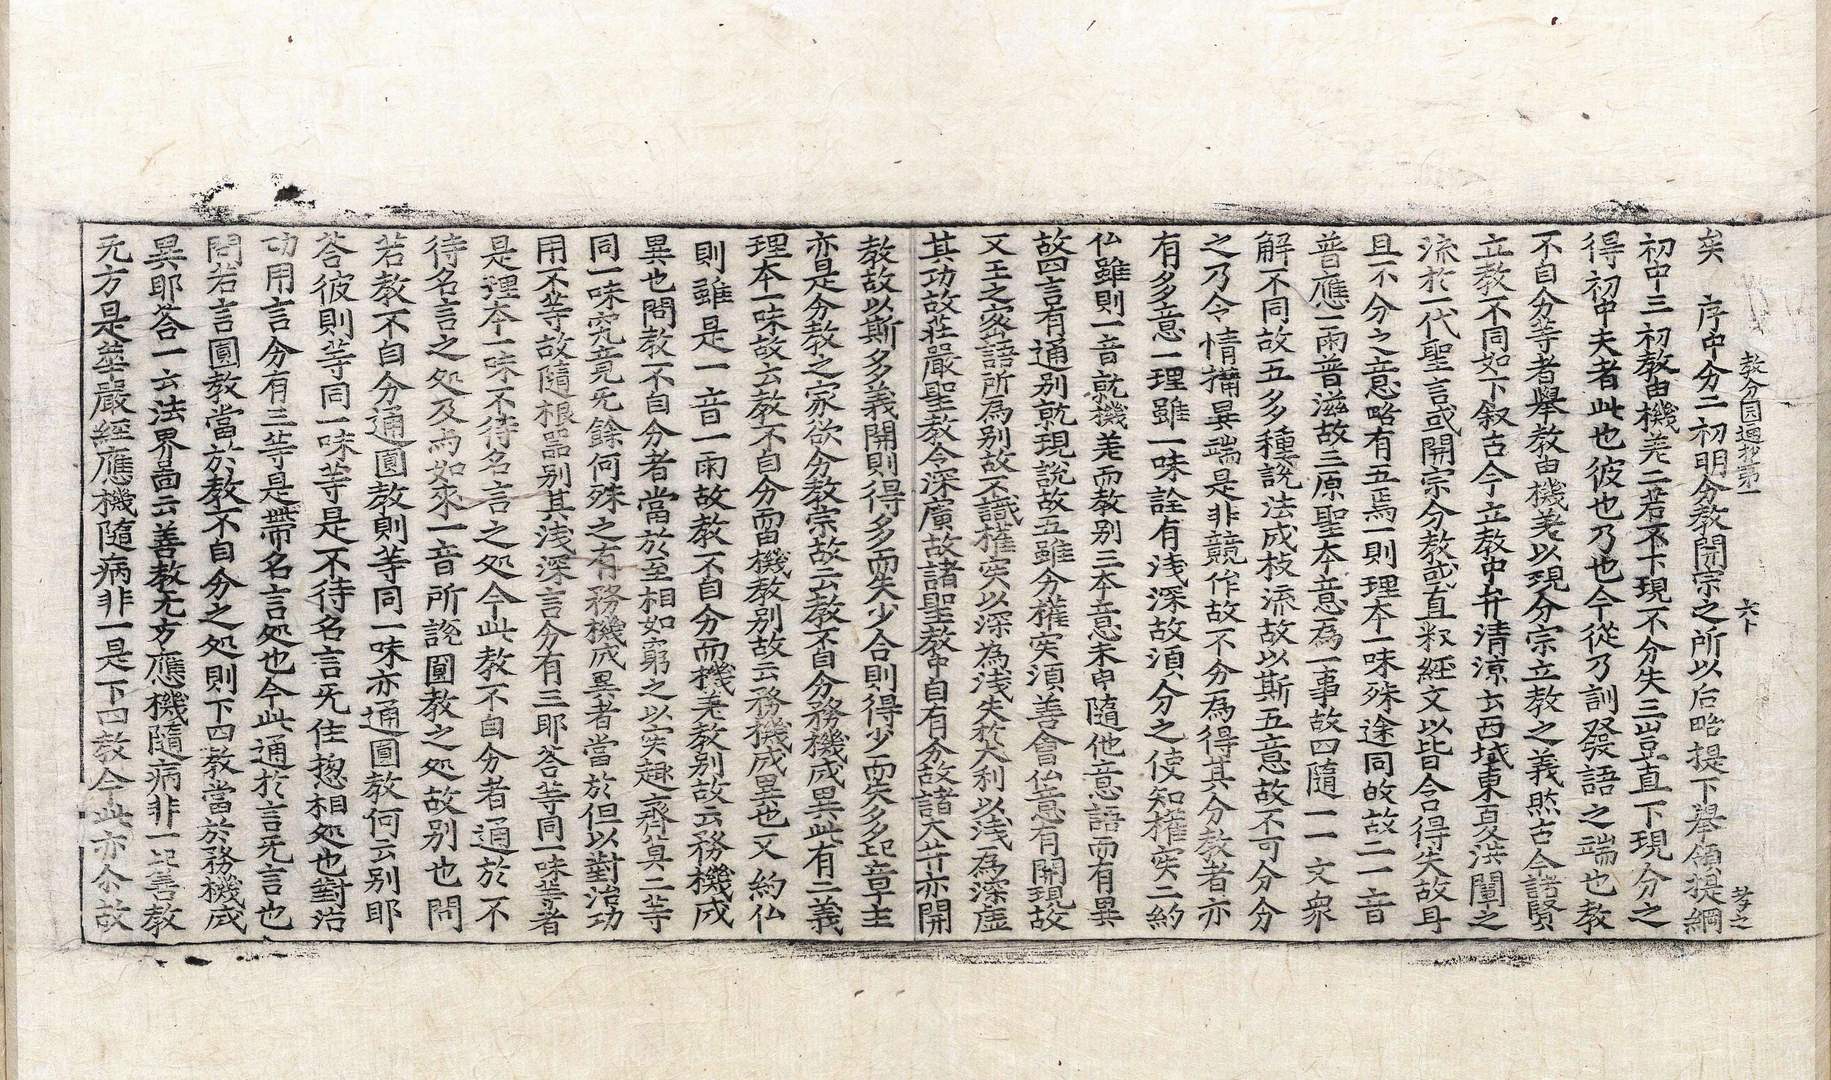 教分圓通抄第一 六卜 孝之
矣 序中分二初明分教開宗之所以后略提下舉領提綱
初中三初教由機差二若不下現不分失三豈直下現分之
得初中夫者此也彼也乃也今從乃訓發語之端也教
不自分等者舉教由機差以現分宗立教之義然古今諸賢
立教不同如下叙古今立教中弁清涼云西域東夏洪闡之
流於一代聖言或開宗分教或直釈經文以皆含得失故耳
且不分之意略有五焉一則理本一味殊途同故故二一音
普應一雨普滋故三原聖本意為一事故四隨一一文衆
解不同故五多種說法成枝流故以斯五意故不可分分
之乃令情搆異端是非競作故不分為得其分教者亦
有多意一理雖一味詮有浅深故湏分之使知權实二約
仏雖則一音就機差而教别三本意未申隨他意語而有異
故四言有通别就現說故五雖分權实湏善會仏意有開現故
又王之密語所為别故不識權实以深為浅失於大利以浅為深虚
其功故荘嚴聖教令深廣故諸聖教中自有分故諸大卄亦開
教故以斯多義開則得多而失少合則得少而失多起章主
亦是分教之家欲分教宗故云教不自分務機成異此有二義
理本一味故云教不自分而由機教别故云務機成異也又約仏
則雖是一音一雨故教不自分而機差教别故云務機成
異也問教不自分者當於至相如窮之以实趣齊莫二等
同一味究竟无餘何殊之有務機成異者當於但以對治功
用不等故隨根器别其浅深言分有三耶答等同一味等者
是理本一味不待名言之処今此教不自分者通於不
待名言之処及如來一音所說圓教之処故别也問
若教不自分通圓教則等同一味亦通圓教何云别耶
答彼則等同一味等是不待名言无住揔相処也對治
功用言分有三等是帶名言処也今此通於言无言也
問若言圓教當於教不自分之処則下四教當於務機成
異耶答一云法界啚云善教无方應機隨病非一是善教
无方是華嚴經應機隨病非一是下四教今此亦尒故